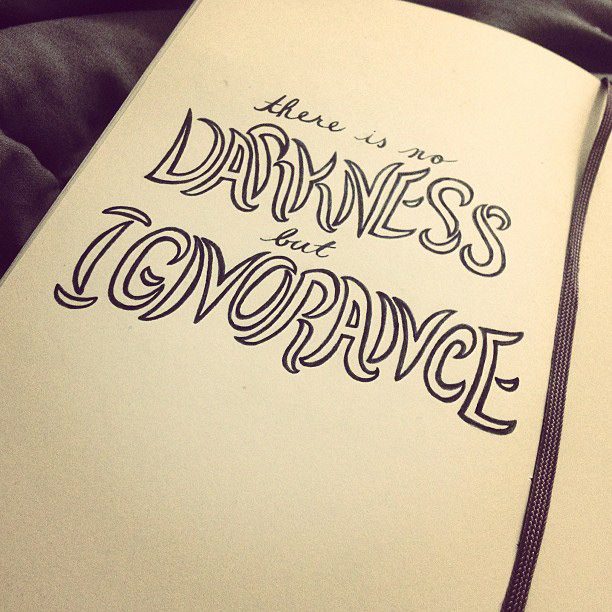 there is no
DARKNESS
but
IGNORANCE